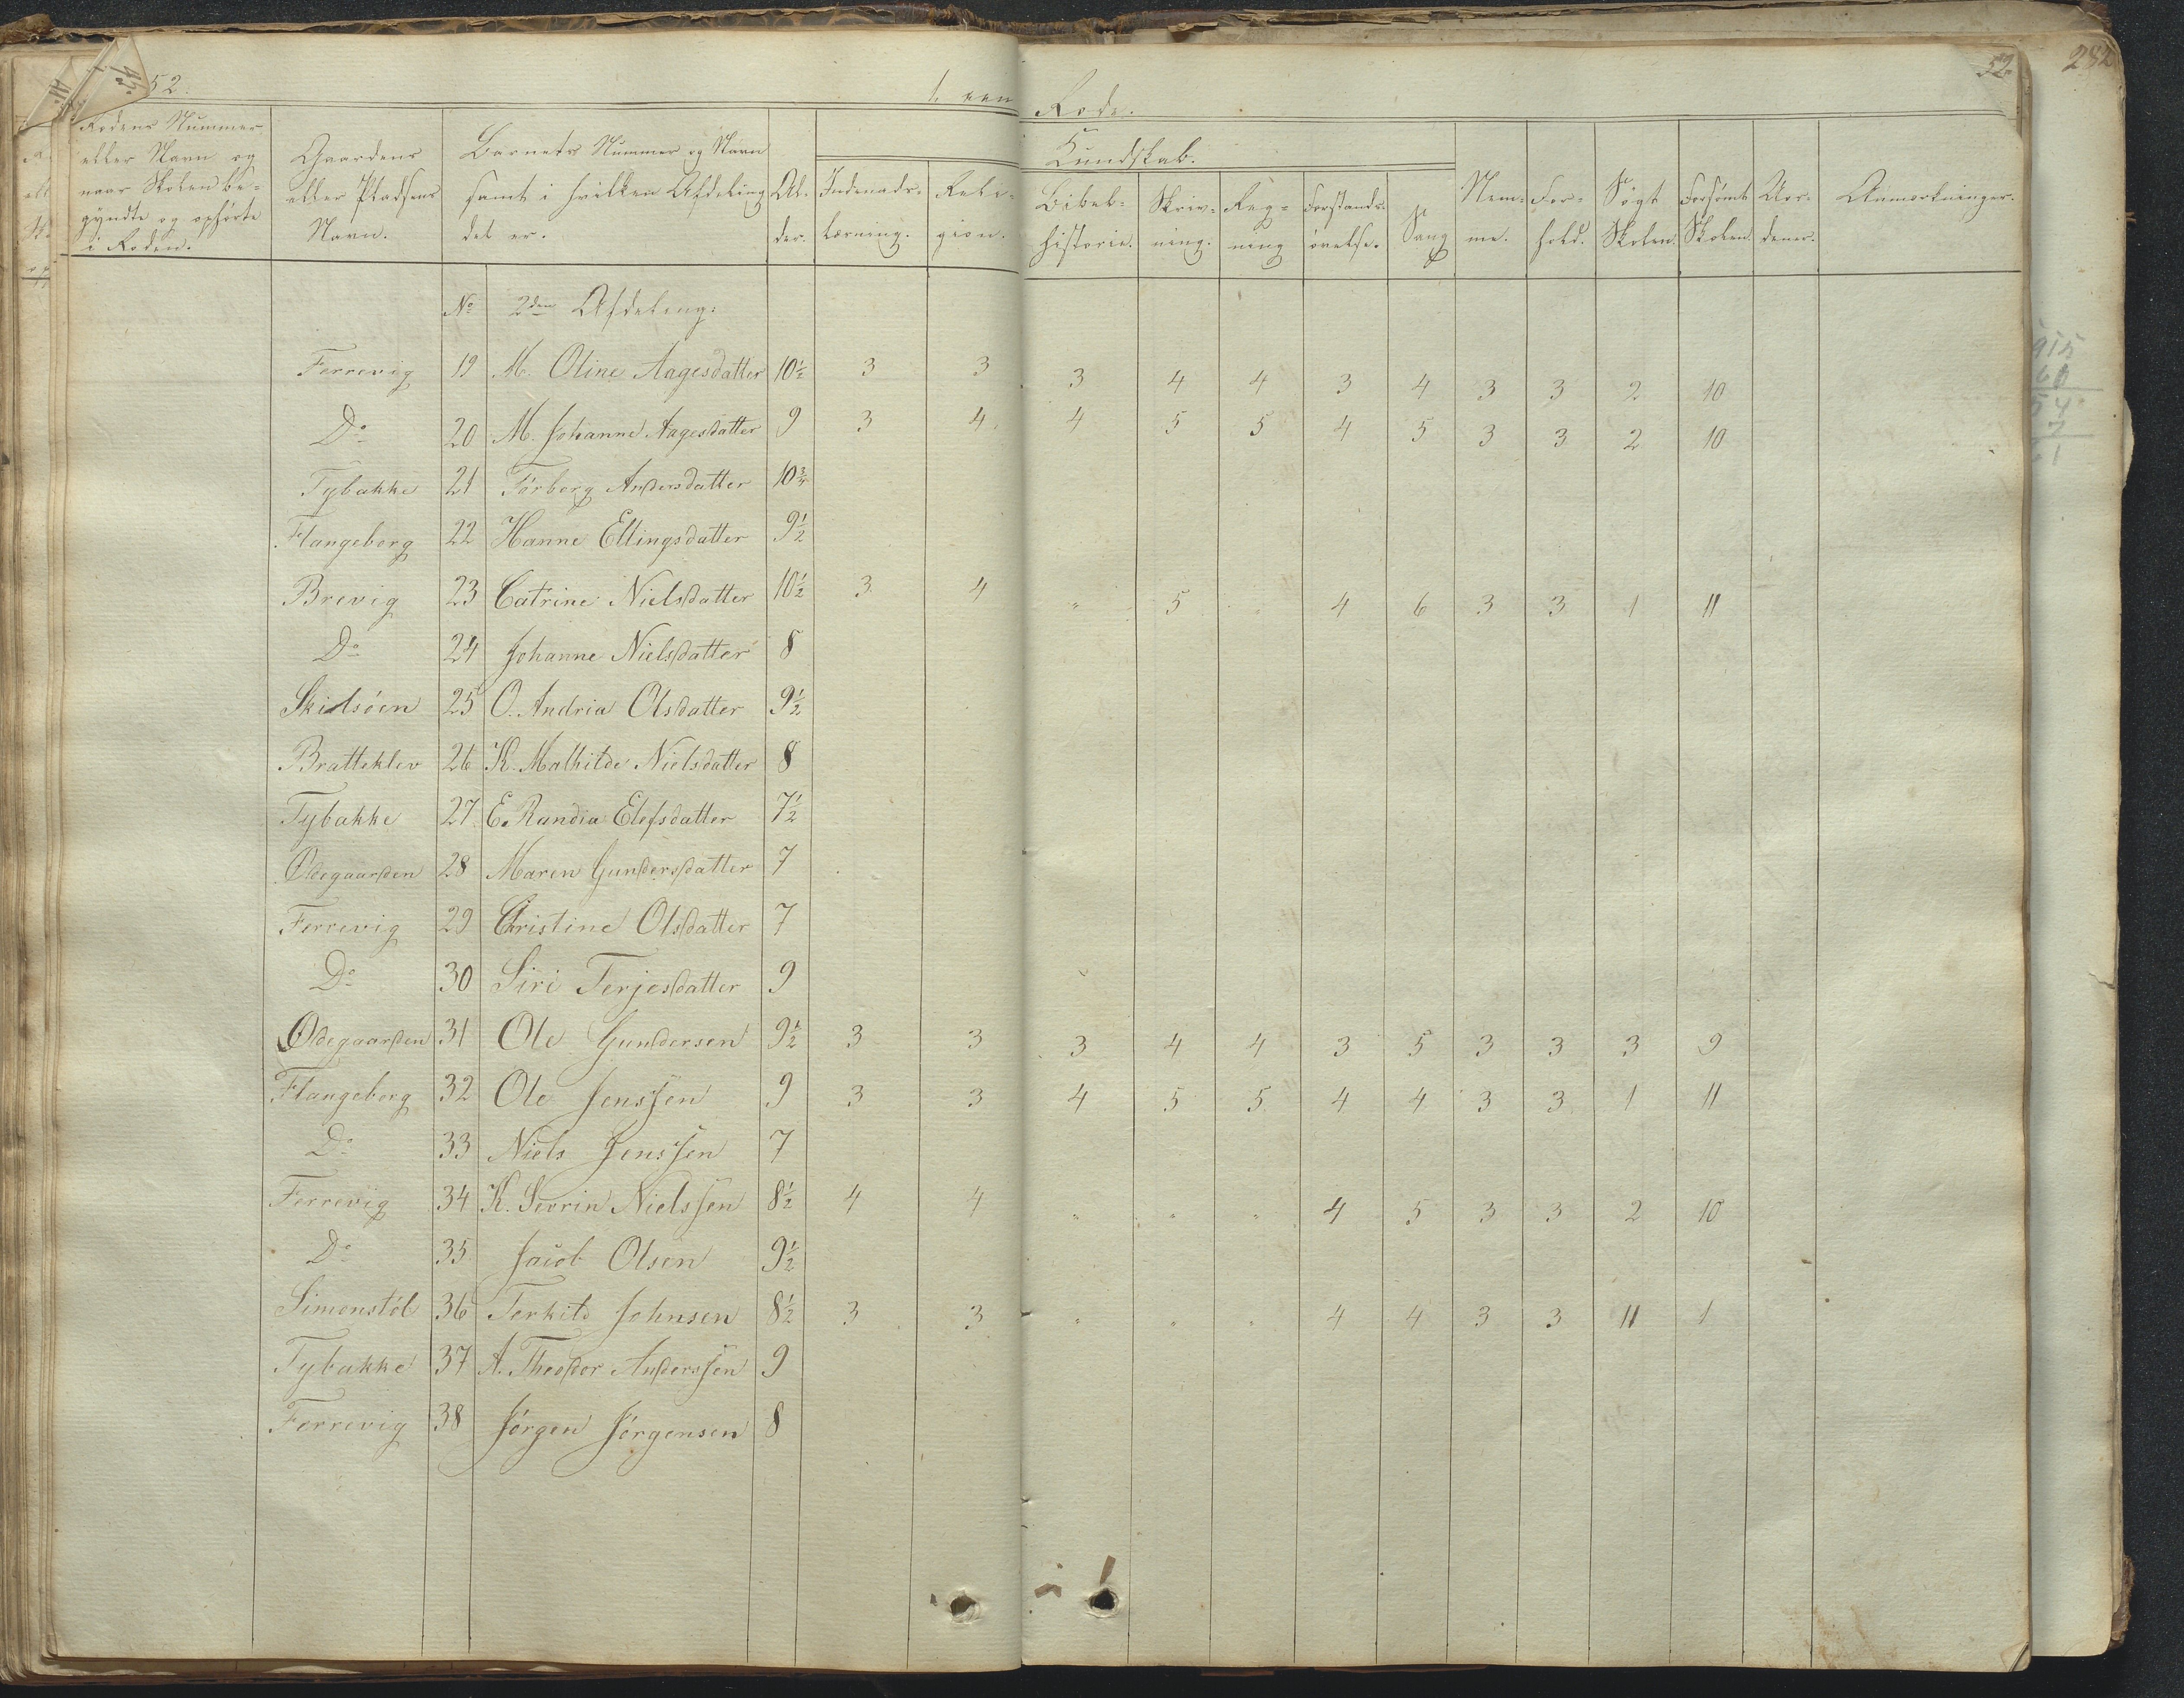 52.
1. een Rode.
52.
282
Rodens Nummer eller Navn og naar Skolen begyndte og ophørte i Roden.
Gaardens eller Pladsens Navn.
Barnets Nummer og Navn samt i hvilken Afdeling det er.
Alder.
Kundskab.
Indenadslæsning.
Religion.
Bibelhistorie.
Skrivning.
Regning
Forstandsøvelse.
Sang
Nemme.
Forhold.
Søgt Skolen.
Forsømt Skolen.
Uordener.
Anmærkninger.
No 2den Afdeling:
Ferrevig 19 M. Oline Aagesdatter 10½ 3 3 3 4 4 3 4 3 3 2 10
Do 20 M. Johanne Aagesdatter 9 3 4 4 5 5 4 5 3 3 2 10
Tybakke 21 Torborg Andersdatter 10¾
Flangeborg 22 Hanne Ellingsdatter 9½
Brevig 23 Catrine Nielsdatter 10½ 3 4 " 5 " 4 6 3 3 1 11
Do 24 Johanne Nielsdatter 8
Skilsöen 25 O. Andria Olsdatter 9½
Bratteklev 26 K. Mathilde Nielsdatter 8
Tybakke 27 E. Randia Elefsdatter 7½
Ødegaarden 28 Maren Gundersdatter 7
Ferrevig 29 Christine Olsdatter 7
Do 30 Siri Terjesdatter 9
Ødegaarden 31 Ole Gundersen 9½ 3 3 3 4 4 3 5 3 3 3 9
Flangeborg 32 Ole Jenssen 9 3 3 4 5 5 4 4 3 3 1 11
Do 33 Niels Jenssen 7
Ferrevig 34 K. Severin Nielssen 8½ 4 4 " " " 4 5 3 3 2 10
Do 35 Jacob Olsen 9½
Simonstöl 36 Terkild Johnsen 8½ 3 3 " " " 4 4 3 3 11 1
Tybakke 37 A. Theodor Anderssen 9
Ferrevig 38 Jörgen Jörgensen 8